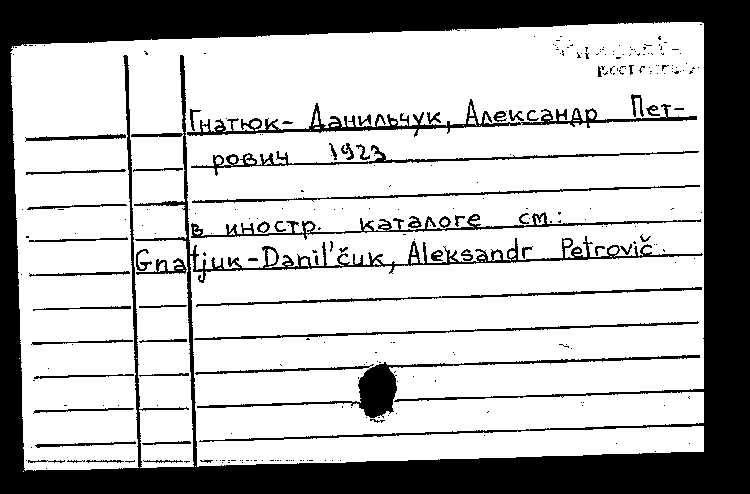 Гнатюк-Данильчук, Александр Пет-
рович 1923
в иностр. каталоге см.:
Gnatjuk-Danil'čuk, Aleksandr Petrovič.